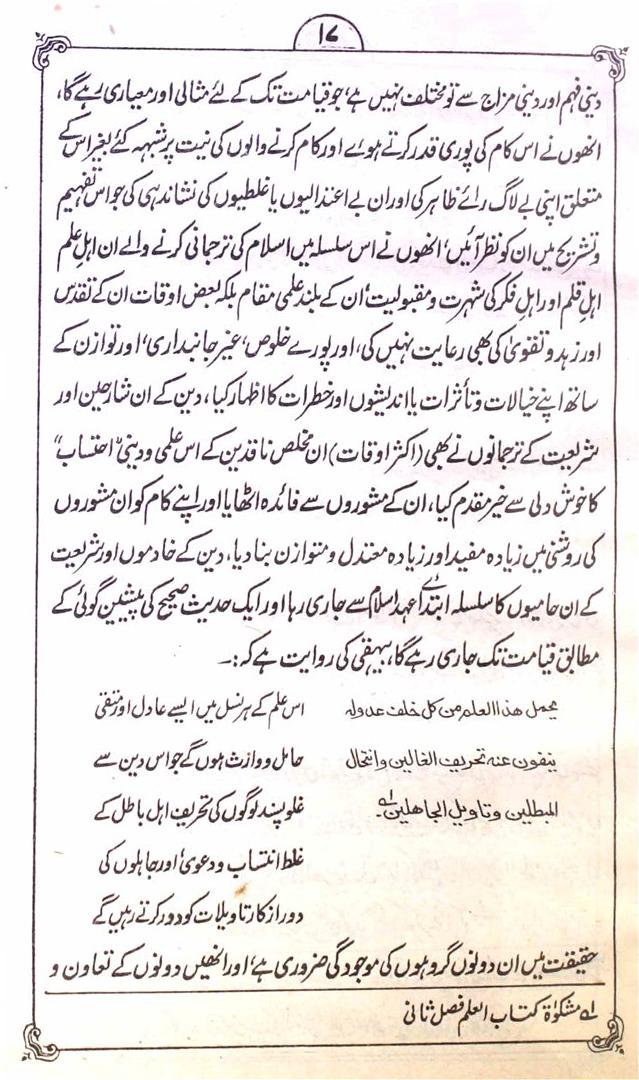 ۱۷
دینی فہم اور دینی مزاج سے تو مختلف نہیں ہے، جو قیامت تک کے لئے مثالی اور معیاری رہے گا،
انھوں نے اس کام کی پوری قدر کرتے ہوئے اور کام کرنے والوں کی نیت پر شبہہ کئے بغیر اس کے
متعلق اپنی بے لاگ رائے ظاہر کی اور ان بے اعتدالیوں یا غلطیوں کی نشاندہی کی جو اس تفہیم
و تشریح میں ان کو نظر آئیں، انھوں نے اس سلسلہ میں اسلام کی ترجمانی کرنے والے ان اہل علم
اہل قلم اور اہل فکر کی شہرت و مقبولیت، ان کے بلند علمی مقام بلکہ بعض اوقات ان کے تقدس
اور زہد و تقویٰ کی بھی رعایت نہیں کی، اور پورے خلوص، غیر جانبداری، اور توازن کے
ساتھ اپنے خیالات و تأثرات یا اندیشوں اور خطرات کا اظہار کیا، دین کے ان شارحین اور
شریعت کے ترجمانوں نے بھی (اکثر اوقات) ان مخلص ناقدین کے اس علمی و دینی "احتساب"
کا خوش دلی سے خیر مقدم کیا، ان کے مشوروں سے فائدہ اٹھایا اور اپنے کام کو ان مشوروں
کی روشنی میں زیادہ مفید اور زیادہ معتدل و متوازن بنا دیا، دین کے خادموں اور شریعت
کے ان حامیوں کا سلسلہ ابتدائے عہد اسلام سے جاری رہا اور ایک حدیث صحیح کی پیشین گوئی کے
مطابق قیامت تک جاری رہے گا، بیہقی کی روایت ہے کہ:۔
یحمل هذا العلم من كل خلف عدوله
ینفون عنه تحریف الغالین وانتحال
المبطلین وتاویل الجاهلین۔ لہ
اس علم کے ہر نسل میں ایسے عادل اور متقی
حامل و وارث ہوں گے جو اس دین سے
غلو پسند لوگوں کی تحریف اہل باطل کے
غلط انتساب و دعویٰ اور جاہلوں کی
دور از کار تاویلات کو دور کرتے رہیں گے
حقیقت میں ان دونوں گروہوں کی موجودگی ضروری ہے، اور انھیں دونوں کے تعاون و
لہ مشکوٰۃ کتاب العلم فصل ثانی